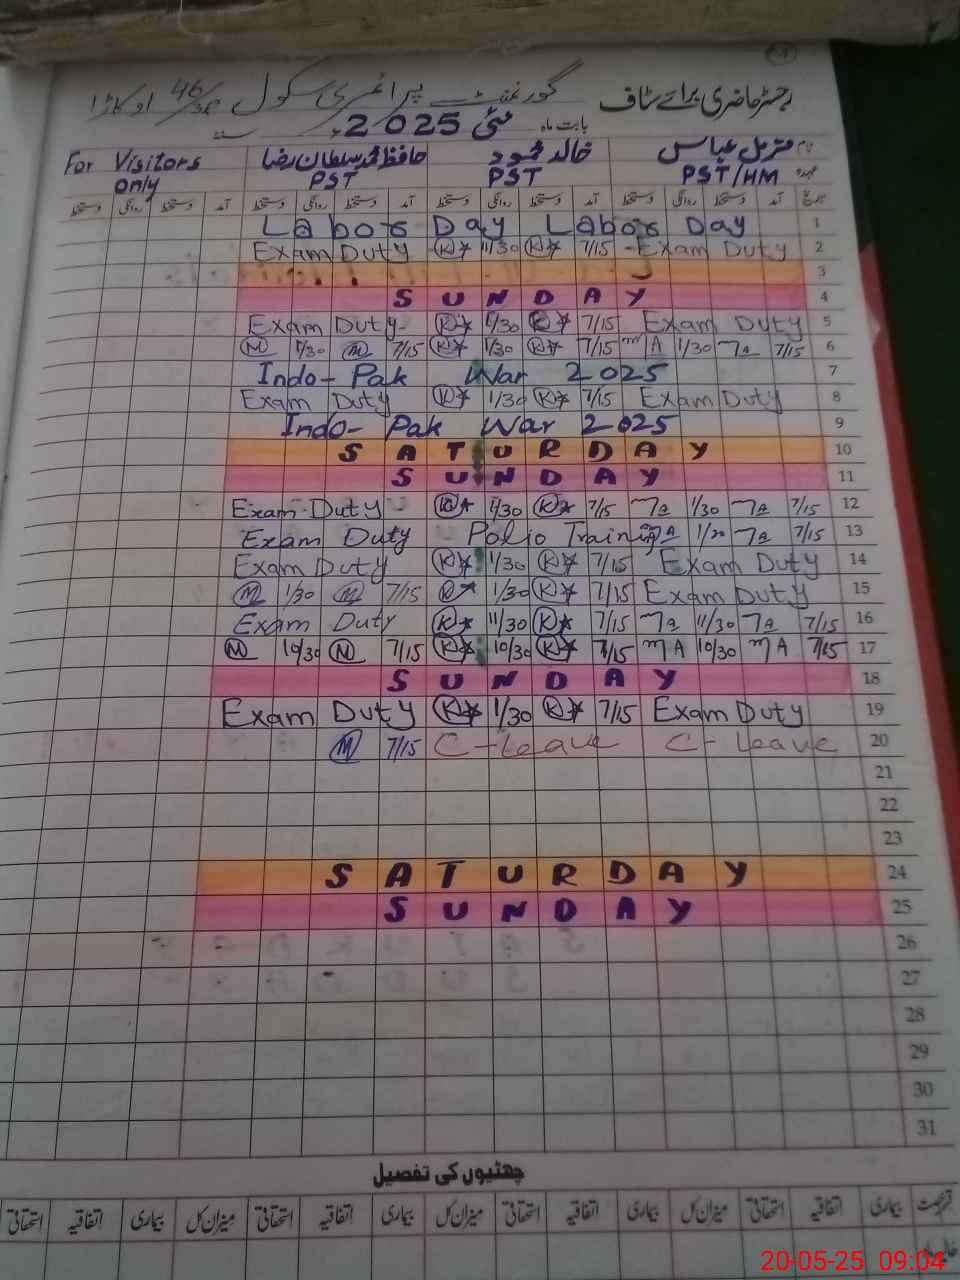 رجسٹر حاضری برائے سٹاف گورنمنٹ پرائمری سکول 46 اوکاڑا
بابت ماہ مئی 2025ء
نام خالد محمود حافظ محمد سلطان رضا For Visitors only
عہدہ PST/HM PST PST
تاریخ آمد دستخط روانگی دستخط آمد دستخط روانگی دستخط آمد دستخط روانگی دستخط آمد دستخط روانگی دستخط
Labor Day Labor Day 1
Exam Duty K 11/30 K 7/15 Exam Duty 2
3
SUNDAY 4
Exam Duty K 1/30 K 7/15 Exam Duty 5
M 1/30 M 7/15 K 1/30 K 7/15 MA 1/30 7/15 6
Indo-Pak War 2025 7
Exam Duty K 1/30 K 7/15 Exam Duty 8
Indo-Pak War 2025 9
SATURDAY 10
SUNDAY 11
Exam Duty K 1/30 K 7/15 1/30 7/15 12
Exam Duty Polio Training 1/30 7/15 13
Exam Duty K 1/30 K 7/15 Exam Duty 14
M 1/30 M 7/15 K 1/30 K 7/15 Exam Duty 15
Exam Duty K 11/30 K 7/15 11/30 7/15 16
M 10/30 M 7/15 K 10/30 K 7/15 MA 10/30 MA 7/15 17
SUNDAY 18
Exam Duty K 1/30 K 7/15 Exam Duty 19
M 7/15 C-Leave C-Leave 20
21
22
23
SATURDAY 24
SUNDAY 25
26
27
28
29
30
31
چھٹیوں کی تفصیل
قسم رخصت بیماری اتفاقیہ استحقاقی میزان کل بیماری اتفاقیہ استحقاقی میزان کل بیماری اتفاقیہ استحقاقی میزان کل بیماری اتفاقیہ استحقاقی
20-05-25 09:04